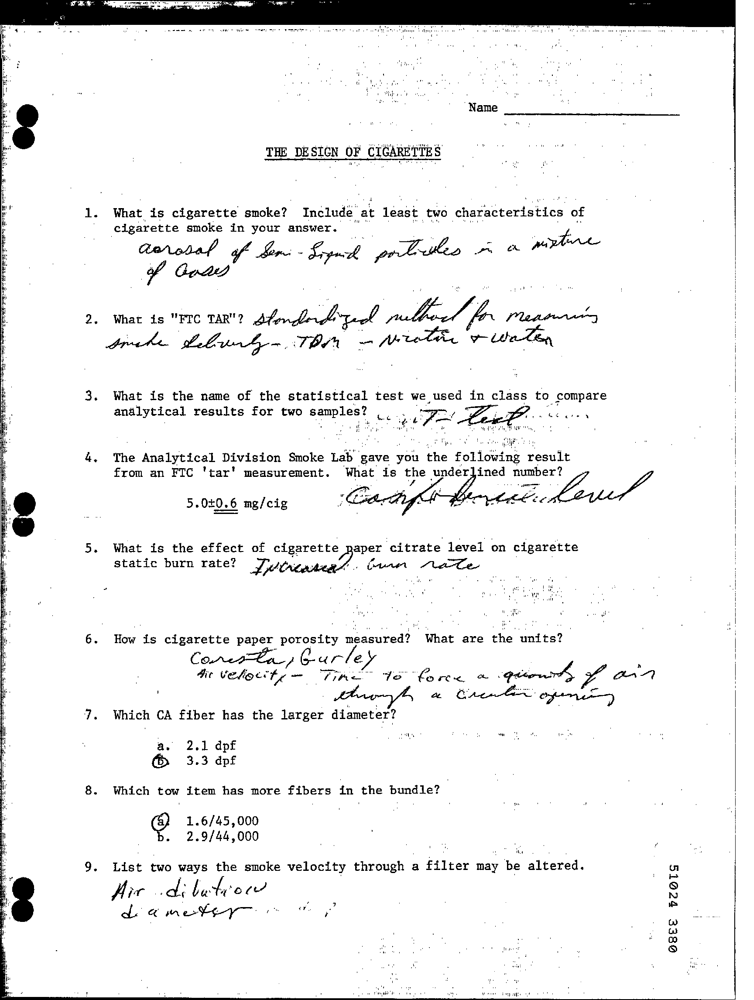 Name
THE DESIGN OF CIGARETTES
1. What is cigarette smoke? Include at least two characteristics of
cigarette smoke in your answer.
aerosol of Semi-Liquid particles in a mixture
of Gases
2. What is "FTC TAR"? Standardized method for measuring
smoke delivery - TPM - Nicotine + water
3. What is the name of the statistical test we used in class to compare
analytical results for two samples? T- Test
4. The Analytical Division Smoke Lab gave you the following result
from an FTC 'tar' measurement. What is the underlined number?
5.0±0.6 mg/cig Level
5. What is the effect of cigarette paper citrate level on cigarette
static burn rate? Increased burn rate
6. How is cigarette paper porosity measured? What are the units?
Coresta, Gurley
Air velocity - Time to force a quantity of air
through a opening
7. Which CA fiber has the larger diameter?
a. 2.1 dpf
b. 3.3 dpf
8. Which tow item has more fibers in the bundle?
a. 1.6/45,000
b. 2.9/44,000
9. List two ways the smoke velocity through a filter may be altered.
Air dilution
diameter
51024 3380